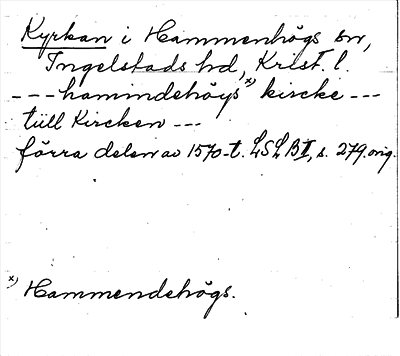 Kyrkan i Hammenhögs sn,
Ingelstads hd, Krist. l.
---hamindehöys x) kircke ---
tiill Kircken ---
förra delen av 1570-t. LSLB II, s. 279. orig.
x) Hammendehögs.